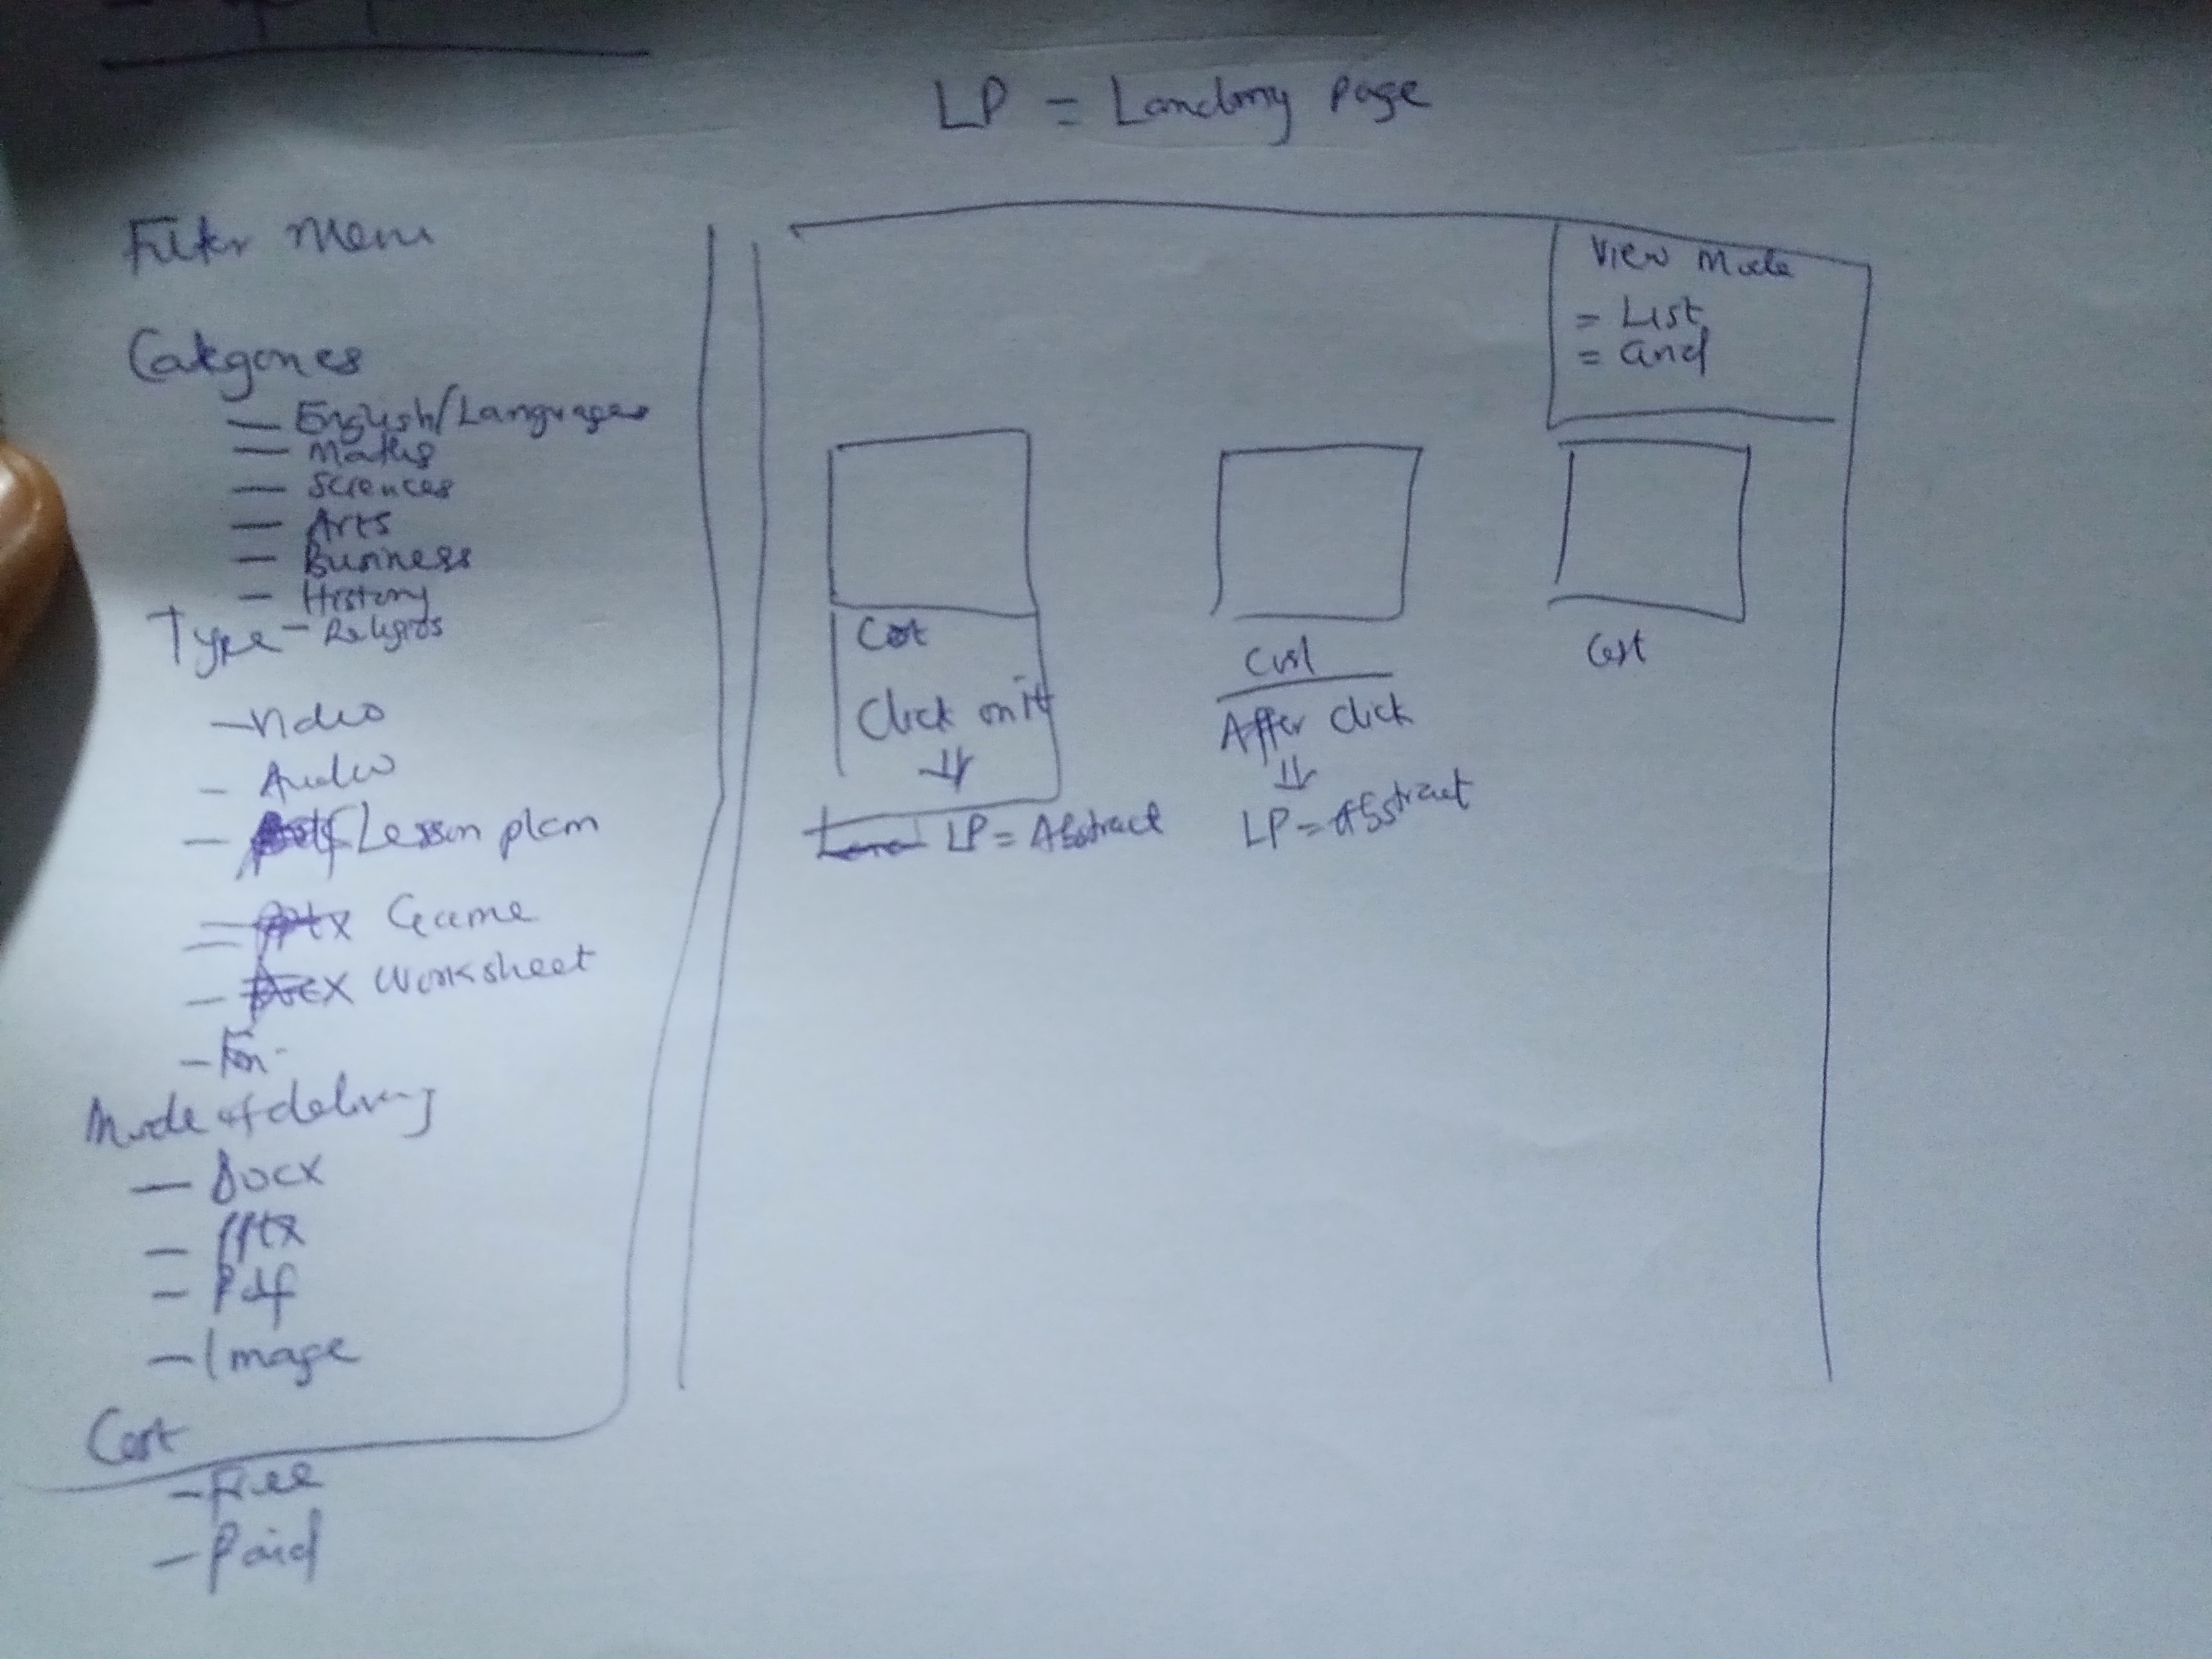 LP = Landing page
Filter Menu
Categories
— English/Languages
— Maths
— Sciences
— Arts
— Business
— History
Type - Religios
- Video
- Audio
- Lesson plan
- Game
- Worksheet
Mode of delivery
— Docx
— pptx
— Pdf
— Image
Cost
- Free
- Paid
View Mode
= List
= Grid
Cost
Click on it
LP = Abstract
Cost
After click
LP = Abstract
Cost